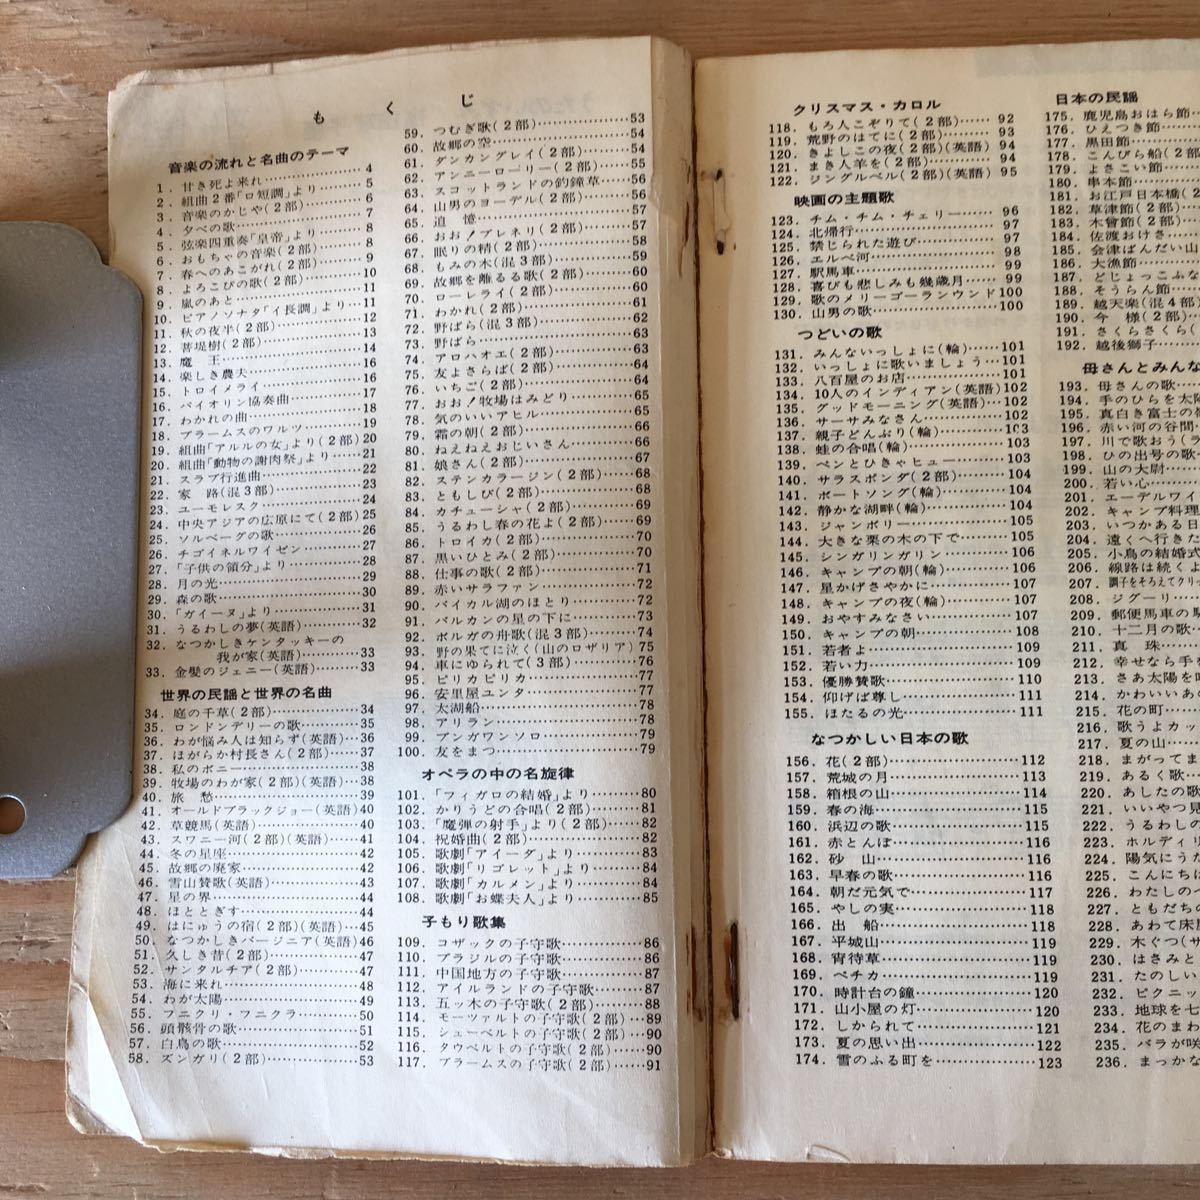 もくじ
音楽の流れと名曲のテーマ
1．甘き死よ来れ…………4
2．組曲2番「ロ短調」より……5
3．音楽のかじや(2部)………6
4．夕べの歌…………7
5．弦楽四重奏「皇帝」より……8
6．おもちゃの音楽(2部)……8
7．春へのあこがれ(2部)……9
8．よろこびの歌(2部)………10
9．嵐のあと…………11
10．ピアノソナタ「イ長調」より…11
11．秋の夜半(2部)………12
12．菩提樹(2部)………13
13．魔　王…………14
14．楽しき農夫…………16
15．トロイメライ…………16
16．バイオリン協奏曲………17
17．わかれの曲…………18
18．ブラームスのワルツ………19
19．組曲「アルルの女」より(2部)20
20．組曲「動物の謝肉祭」より……21
21．スラブ行進曲…………22
22．家　路(混3部)…………23
23．ユーモレスク…………24
24．中央アジアの広原にて(2部)25
25．ソルベーグの歌…………26
26．チゴイネルワイゼン………27
27．「子供の領分」より………28
28．月の光…………29
29．森の歌…………30
30．「ガイーヌ」より…………31
31．うるわしの夢(英語)………32
32．なつかしきケンタッキーの
我が家(英語)………33
33．金髪のジェニー(英語)……33
世界の民謡と世界の名曲
34．庭の千草(2部)…………34
35．ロンドンデリーの歌………35
36．わが悩み人は知らず(英語)…36
37．ほがらか村長さん(2部)……37
38．私のボニー…………38
39．牧場のわが家(2部)(英語)…38
40．旅　愁…………39
41．オールドブラックジョー(英語)40
42．草競馬(英語)…………40
43．スワニー河(2部)(英語)…41
44．冬の星座…………42
45．故郷の廃家…………42
46．雪山賛歌(英語)…………43
47．星の界…………44
48．ほととぎす…………44
49．はにゅうの宿(2部)(英語)…45
50．なつかしきバージニア(英語)46
51．久しき昔(2部)…………47
52．サンタルチア(2部)………47
53．海に来れ…………48
54．わが太陽…………49
55．フニクリ・フニクラ………50
56．頭骸骨の歌…………51
57．白鳥の歌…………52
58．ズンガリ(2部)…………53
59．つむぎ歌(2部)…………53
60．故郷の空…………54
61．ダンカングレイ(2部)……54
62．アンニーローリー(2部)……55
63．スコットランドの釣鐘草……56
64．山男のヨーデル(2部)……56
65．追　憶…………57
66．おお！ブレネリ(2部)……57
67．眠りの精(2部)…………58
68．もみの木(混3部)………59
69．故郷を離るる歌(2部)……60
70．ローレライ(2部)………60
71．わかれ(2部)…………61
72．野ばら(混3部)…………62
73．野ばら…………63
74．アロハオエ(2部)………63
75．友よさらば(2部)………64
76．いちご(2部)…………64
77．おお！牧場はみどり………65
78．気のいいアヒル…………65
79．霜の朝(2部)…………66
80．ねえねえおじいさん………66
81．娘さん(2部)…………67
82．ステンカラージン(2部)……68
83．ともしび(2部)…………68
84．カチューシャ(2部)………69
85．うるわし春の花よ(2部)……69
86．トロイカ(2部)…………70
87．黒いひとみ(2部)………70
88．仕事の歌(2部)…………71
89．赤いサラファン…………72
90．バイカル湖のほとり………72
91．バルカンの星の下に………73
92．ボルガの舟歌(混3部)……74
93．野の果てに泣く(山のロザリア)75
94．車にゆられて(3部)………76
95．ピリカピリカ…………77
96．安里屋ユンタ…………77
97．太湖船…………78
98．アリラン…………78
99．ブンガワンソロ…………79
100．友をまつ…………79
オペラの中の名旋律
101．「フィガロの結婚」より……80
102．かりうどの合唱(2部)……81
103．「魔弾の射手」より(2部)……82
104．祝婚曲(2部)…………82
105．歌劇「アイーダ」より………83
106．歌劇「リゴレット」より……84
107．歌劇「カルメン」より………84
108．歌劇「お蝶夫人」より………85
子もり歌集
109．コザックの子守歌…………86
110．ブラジルの子守歌…………86
111．中国地方の子守歌…………87
112．アイルランドの子守歌………87
113．五ッ木の子守歌(2部)……88
114．モーツァルトの子守歌(2部)…89
115．シューベルトの子守歌(2部)…90
116．タウベルトの子守歌(2部)…90
117．ブラームスの子守歌(2部)……91
クリスマス・カロル
118．もろ人こぞりて(2部)……92
119．荒野のはてに(2部)………93
120．きよしこの夜(2部)(英語)94
121．まき人羊を(2部)………94
122．ジングルベル(2部)(英語)95
映画の主題歌
123．チム・チム・チェリー……96
124．北帰行…………97
125．禁じられた遊び…………97
126．エルベ河…………98
127．駅馬車…………99
128．喜びも悲しみも幾歳月……99
129．歌のメリーゴーランウンド100
130．山男の歌…………100
つどいの歌
131．みんないっしょに(輪)……101
132．いっしょに歌いましょう…101
133．八百屋のお店…………101
134．10人のインディアン(英語)102
135．グッドモーニング(英語)…102
136．サーサみなさん…………102
137．親子どんぶり(輪)………103
138．蛙の合唱(輪)…………103
139．ペンとひきゃヒュー………103
140．サラスポンダ(2部)……104
141．ボートソング(輪)………104
142．静かな湖畔(輪)…………104
143．ジャンボリー…………105
144．大きな栗の木の下で………105
145．シンガリンガリン…………106
146．キャンプの朝(輪)………106
147．星かげさやかに…………107
148．キャンプの夜(輪)………107
149．おやすみなさい…………107
150．キャンプの朝…………108
151．若者よ…………109
152．若い力…………109
153．優勝賛歌…………110
154．仰げば尊し…………111
155．ほたるの光…………111
なつかしい日本の歌
156．花(2部)…………112
157．荒城の月…………113
158．箱根の山…………114
159．春の海…………115
160．浜辺の歌…………115
161．赤とんぼ…………116
162．砂　山…………116
163．早春の歌…………116
164．朝だ元気で…………117
165．やしの実…………118
166．出　船…………118
167．平城山…………119
168．宵待草…………119
169．ペチカ…………119
170．時計台の鐘…………120
171．山小屋の灯…………120
172．しかられて…………121
173．夏の思い出…………122
174．雪のふる町を…………123
日本の民謡
175．鹿児島おはら節
176．ひえつき節
177．黒田節
178．こんぴら船(2部
179．よさこい節
180．串本節
181．お江戸日本橋(2
182．草津節(2部)
183．木曾節(2部)
184．佐渡おけさ
185．会津ばんだい山
186．大漁節
187．どじょっこふな
188．そうらん節
189．越天楽(混4部)
190．今　様(2部)
191．さくらさくら(
192．越後獅子
母さんとみんな
193．母さんの歌
194．手のひらを太陽
195．真白き富士の
196．赤い河の谷間
197．川で歌おう(ラ
198．ひの出号の歌
199．山の大尉
200．若い心
201．エーデルワイ
202．キャンプ料理
203．いつかある日
204．遠くへ行きた
205．小鳥の結婚式
206．線路は続くよ
207．調子をそろえてクリッ
208．ジグーリ
209．郵便馬車の
210．十二月の歌
211．真　珠
212．幸せなら手
213．さあ太陽を
214．かわいいあ
215．花の町
216．歌うよカッ
217．夏の山
218．まがってま
219．あるく歌
220．あしたの歌
221．いいやつ見
222．うるわしの
223．ホルディリ
224．陽気にうた
225．こんにちは
226．わたしの
227．ともだち
228．あわて床屋
229．木ぐつ(
230．はさみと
231．たのしい
232．ピクニッ
233．地球を七
234．花のまわ
235．バラが咲
236．まっかな